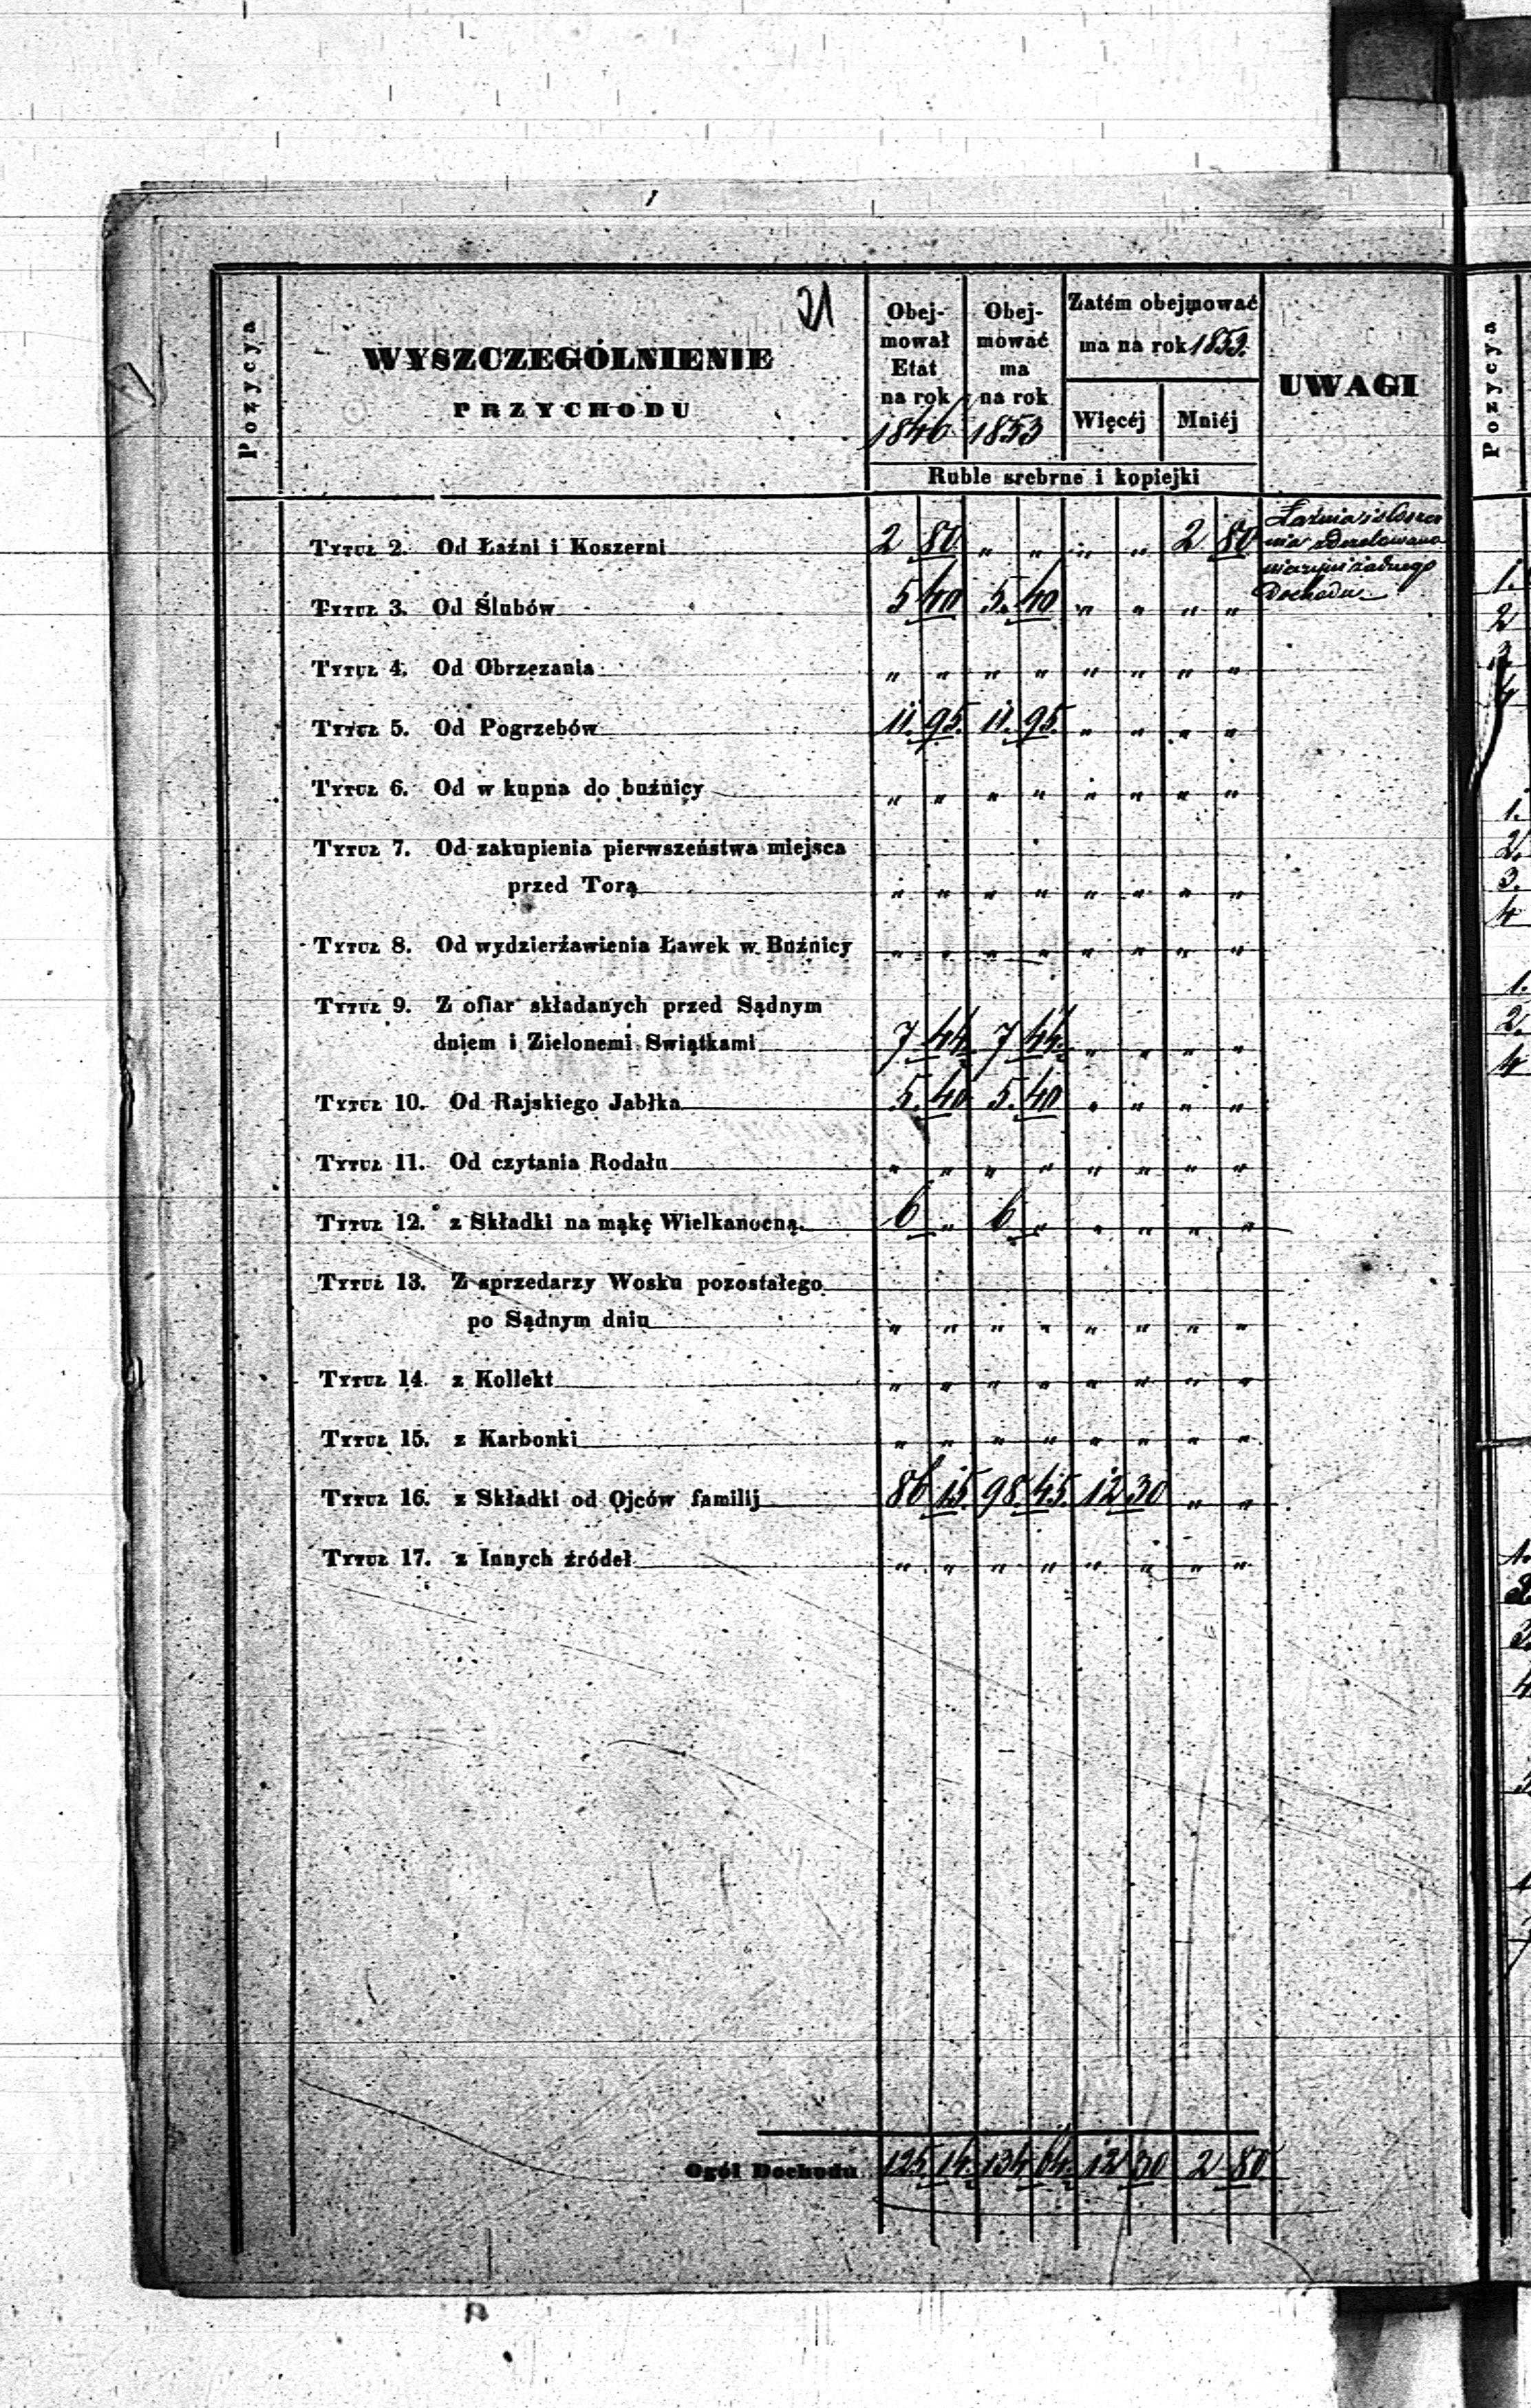 21
Pozycya
WYSZCZEGÓLNIENIE
PRZYCHODU
Obej-
mował
Etat
na rok
1846
Obej-
mować
ma
na rok
1853
Zatém obejmować
ma na rok 1853.
Więcéj Mniéj
Ruble srebrne i kopiejki
UWAGI
Pozycya
Tytuł 2. Od Łaźni i Koszerni 2 80 „ „ „ „ 2 80
Łaźnia i Koszer
nia zdezelowana
nieczyni żadnego
Dochodu
Tytuł 3. Od Ślubów 5 40 5. 40 „ „ „ „
Tytuł 4. Od Obrzęzania „ „ „ „ „ „ „ „
Tytuł 5. Od Pogrzebów 11. 95. 11. 95. „ „ „ „
Tytuł 6. Od w kupna do buźnicy „ „ „ „ „ „ „ „
Tytuł 7. Od zakupienia pierwszeństwa miejsca
przed Torą „ „ „ „ „ „ „ „
Tytuł 8. Od wydzierźawienia Ławek w Buźnicy „ „ „ „ „ „ „ „
Tytuł 9. Z ofiar składanych przed Sądnym
dniem i Zielonemi Swiątkami 7 44 7 44 „ „ „ „
Tytuł 10. Od Rajskiego Jabłka 5. 40 5. 40 „ „ „ „
Tytuł 11. Od czytania Rodału „ „ „ „ „ „ „ „
Tytuł 12. z Składki na mąkę Wielkanocną. 6 „ 6 „ „ „ „ „
Tytuł 13. Z sprzedarzy Wosku pozostałego
po Sądnym dniu „ „ „ „ „ „ „ „
Tytuł 14. z Kollekt „ „ „ „ „ „ „ „
Tytuł 15. z Karbonki „ „ „ „ „ „ „ „
Tytuł 16. z Składki od Ojców familij 86 15. 98. 45. 12 30 „ „
Tytuł 17. z Innych źródeł „ „ „ „ „ „ „ „
Ogół Dochodu 125 14. 134 64. 12 30 2 80